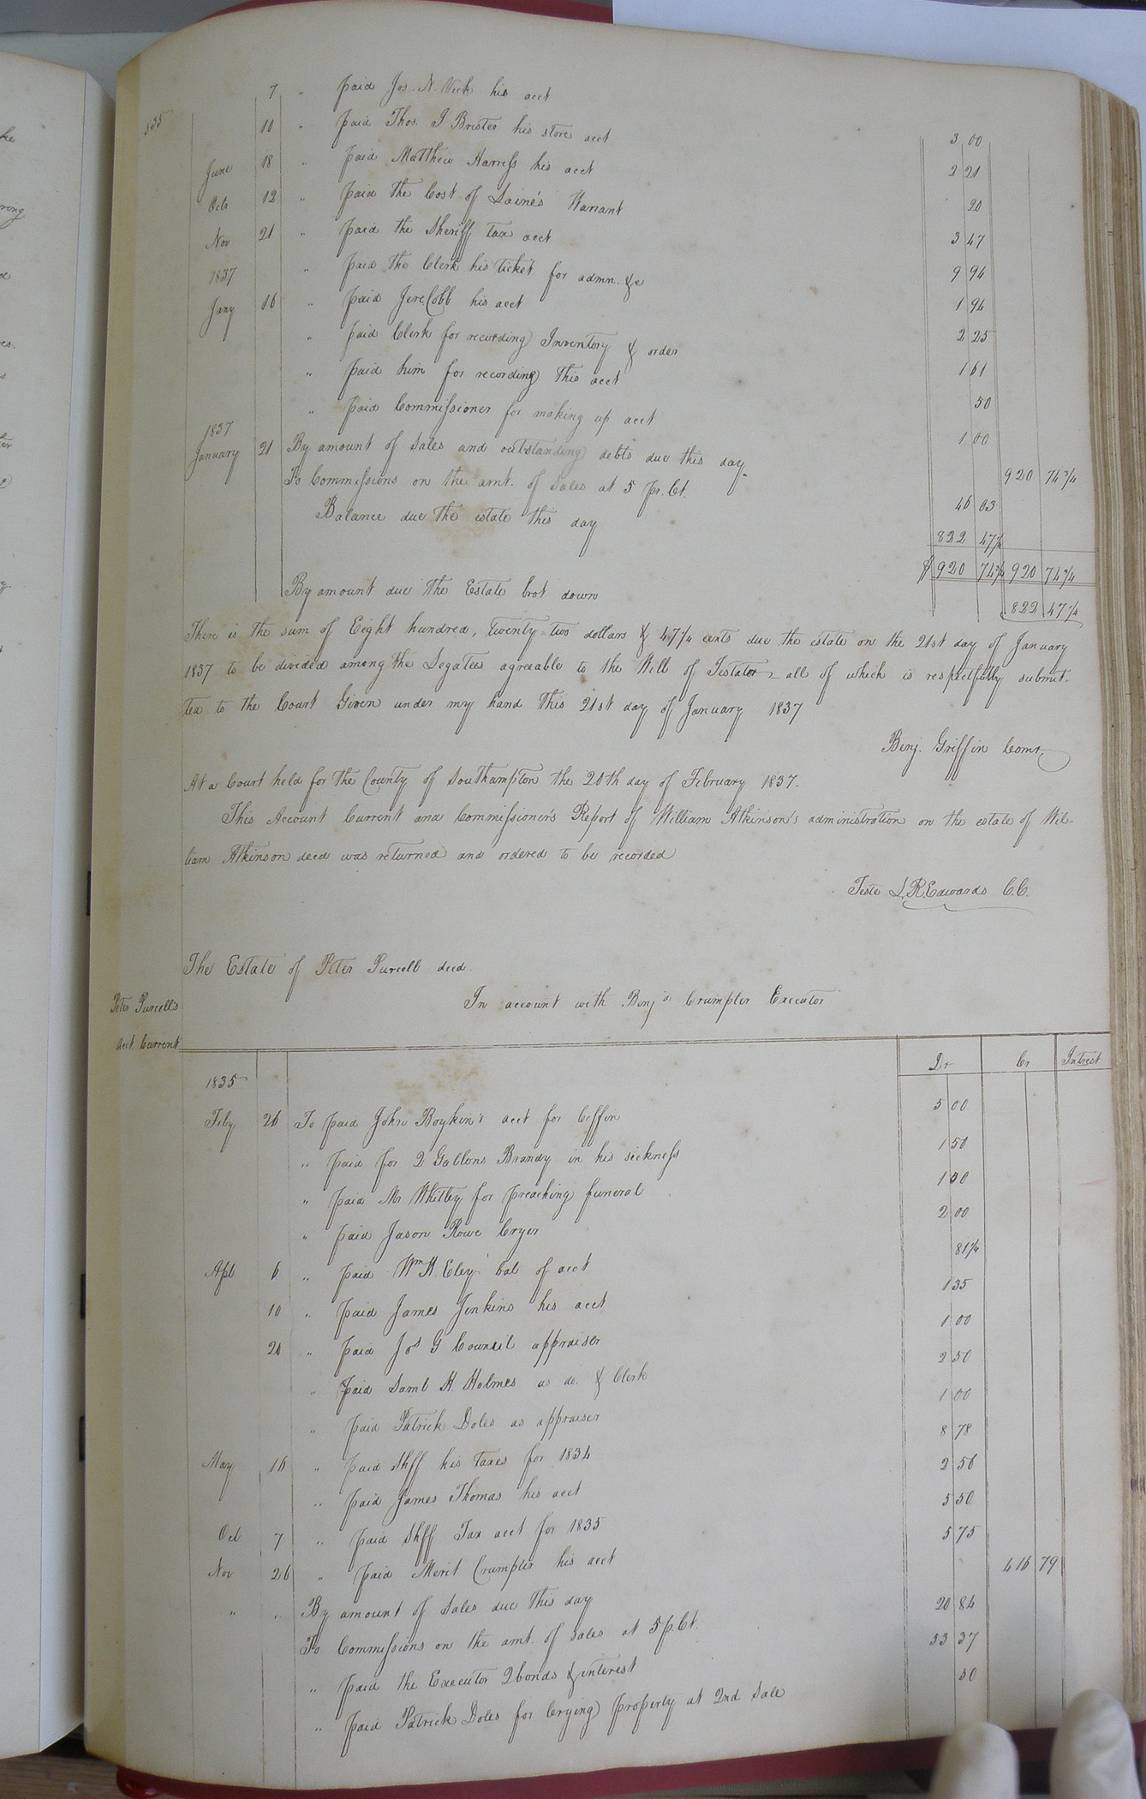 535
7 " paid Jos. N. his acct 3 00
10 " paid Thos. J Bristes his store acct 2 21
June 18 " paid Matthew Harress his acct 20
Octr 12 " paid the Cost of Laine's Warrant 3 47
Nov 21 " paid the Sheriff tax acct 9 94
1837 " paid the Clerk his ticket for admn. &c 1 94
Jany 16 " paid Jere. Cobb his acct 2 25
" paid Clerk for recording Inventory & order 1 61
" paid him for recording this acct 50
" paid Commissioner for making up acct 1 00
1837
January 21 By amount of Sales and outstanding debts due this day 920 74 3/4
To Commissions on the amt. of Sales at 5 pr. Ct. 46 03
Balance due the estate this day 822 47 1/4
$ 920 74 3/4 920 74 3/4
By amount due the Estate brot down 822 47 1/4
There is the sum of Eight hundred, twenty two dollars & 47 1/4 cents due the estate on the 21st day of January
1837 to be divided among the Legatees agreable to the Will of Testator - all of which is respectfully submit-
ted to the Court Given under my hand this 21st day of January 1837
Benj. Griffin Comr.
At a Court held for the County of Southampton the 20th day of February 1837.
This Account Current and Commissioner's Report of William Atkinson's administration on the estate of Wil-
liam Atkinson decd was returned and ordered to be recorded
Teste L.R. Edwards C.C.
The Estate of Peter Purcell decd.
In account with Benja. Crumpler Executor
Peter Purcell's
acct Current
Dr Cr Intrest
1835
Feby 26 To paid John Boykin's acct for Coffin 5 00
" paid for 2 Gallons Brandy in his sickness 1 50
" paid Mr Whitley for preaching funeral 1 50
" paid Jason Rowe Cryer 2 00
Apl 6 " paid Wm. H. Eley bal of acct 81 1/4
10 " paid James Jenkins his acct 1 35
20 " paid Jos G Council appraiser 1 00
" paid Saml H. Holmes as do. & Clerk 2 50
" paid Patrick Doles as appraiser 1 00
May 16 " paid Shff his taxes for 1834 8 78
" paid James Thomas his acct 2 56
Oct 7 " paid Shff Tax acct for 1835 5 50
Nov 26 " paid Merit Crumpler his acct 5 75
" " By amount of Sales due this day 416 79
To Commissions on the amt. of Sales at 5 p. Ct. 20 84
" paid the Executor 2 bonds & interest 53 37
" paid Patrick Doles for Crying property at 2nd Sale 50